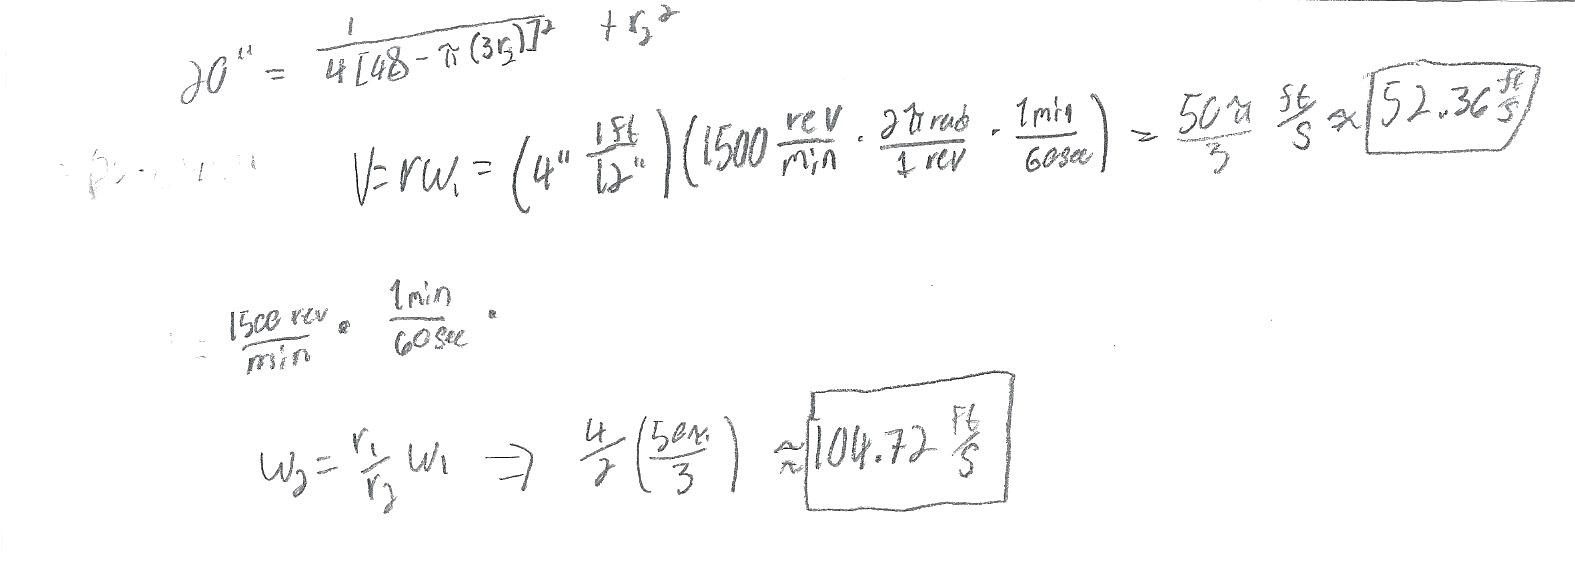 20" = 1/(4[48 - π(3r₂)]²) + r₂²
V = rω₁ = (4" 1ft/12")(1500 rev/min · 2π rad/1 rev · 1min/60sec) = 50π/3 ft/s ≈ 52.36 ft/s
= 1500 rev/min · 1min/60sec ·
ω₂ = r₁/r₂ ω₁ ⇒ 4/2 (50π/3) ≈ 104.72 ft/s